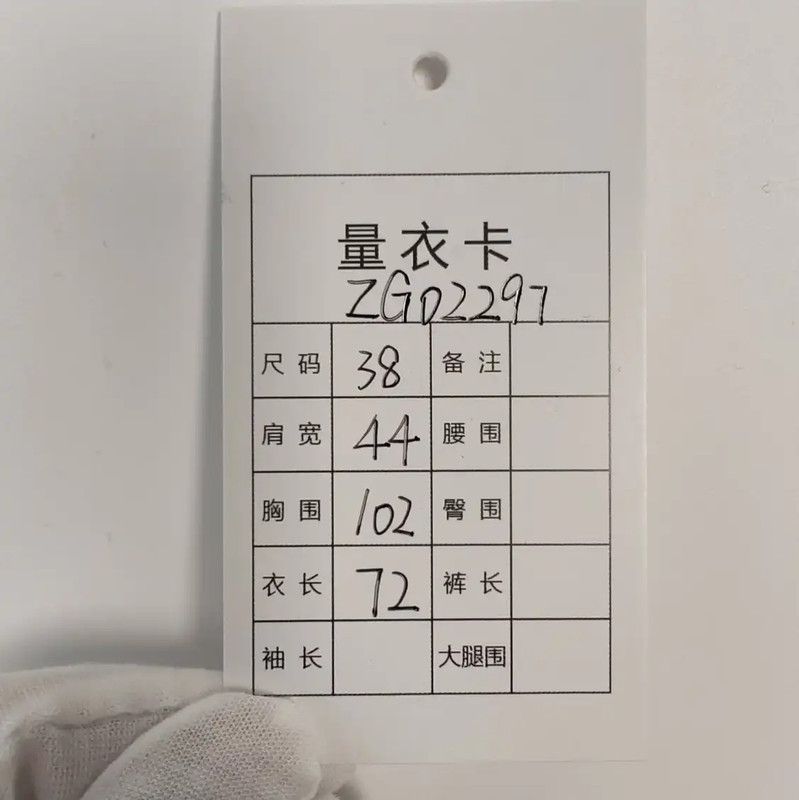 量衣卡
ZG02297
尺码 38 备注
肩宽 44 腰围
胸围 102 臀围
衣长 72 裤长
袖长 大腿围